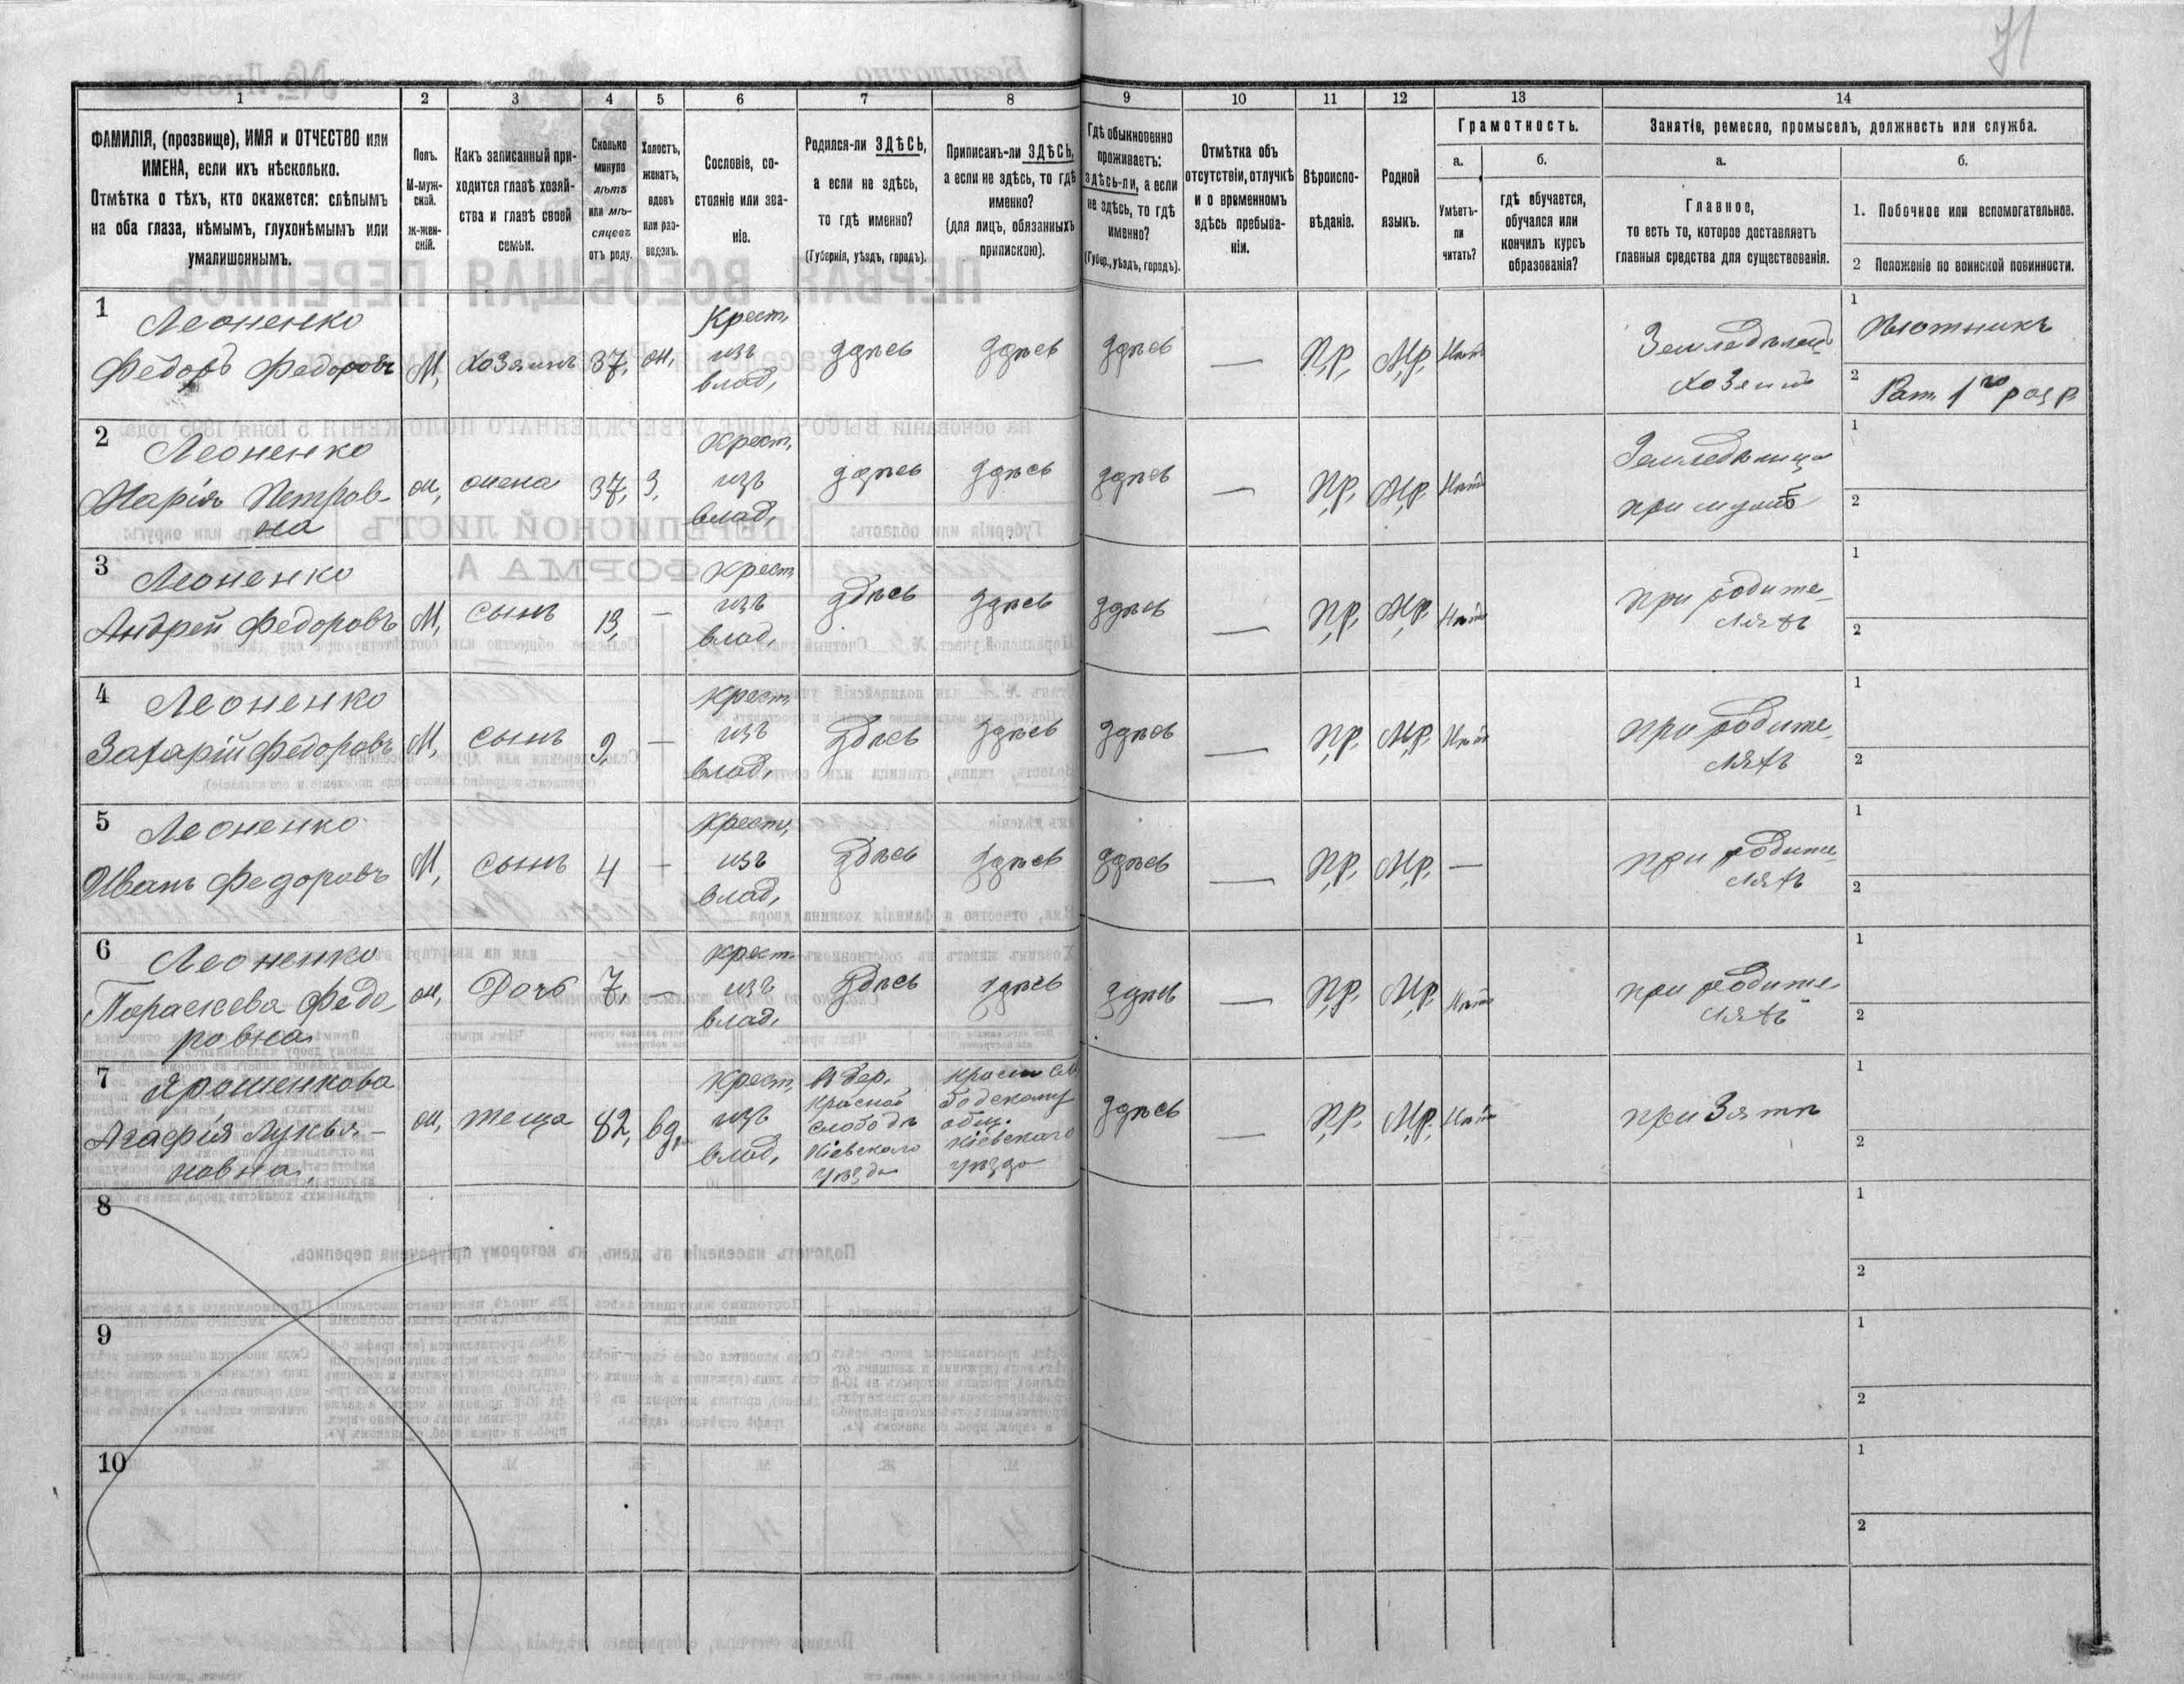 71
1
2
3
4
5
6
7
8
9
10
11
12
13
14
ФАМИЛІЯ, (прозвище), ИМЯ и ОТЧЕСТВО или
ИМЕНА, если ихъ нѣсколько.
Отмѣтка о тѣхъ, кто окажется: слѣпымъ
на оба глаза, нѣмымъ, глухонѣмымъ или
умалишоннымъ.
Полъ.
М-муж-
ской.
ж-жен-
скій.
Какъ записанный при-
ходится главѣ хозяй-
ства и главѣ своей
семьи.
Сколько
минуло
лѣтъ
или мѣ-
сяцевъ
отъ роду.
Холостъ,
женатъ,
вдовъ
или раз-
веденъ.
Сословіе, со-
стояніе или зва-
ніе.
Родился-ли ЗДѢСЬ,
а если не здѣсь,
то гдѣ именно?
(Губернія, уѣздъ, городъ).
Приписанъ-ли ЗДѢСЬ,
а если не здѣсь, то гдѣ
именно?
(для лицъ, обязанныхъ
припискою).
Гдѣ обыкновенно
проживаетъ:
здѣсь-ли, а если
не здѣсь, то гдѣ
именно?
(Губер., уѣздъ, городъ).
Отмѣтка объ
отсутствіи, отлучкѣ
и о временномъ
здѣсь пребыва-
ніи.
Вѣроиспо-
вѣданіе.
Родной
языкъ.
Грамотность.
а.
Умѣетъ-
ли
читать?
б.
гдѣ обучается,
обучался или
кончилъ курсъ
образованія?
Занятіе, ремесло, промыселъ, должность или служба.
а.
Главное,
то есть то, которое доставляетъ
главныя средства для существованія.
б.
1. Побочное или вспомогательное.
2 Положеніе по воинской повинности.
1 Леоненко
Федоръ Федоровъ М, хозяинъ 37, ж, Крест, изъ влад, здѣсь здѣсь здѣсь — Пр, Мр, Нѣтъ Земледѣлецъ хозяинъ
1 Плотникъ
2 Рат. 1го разр.
2 Леоненко
Марія Петров-
на ж, жена 37, З, Крест, изъ влад, здѣсь здѣсь здѣсь — Пр, Мр, Нѣтъ Земледѣлица при мужѣ
1
2
3 Леоненко
Андрей Федоровъ М, сынъ 13, — Крест, изъ влад, здѣсь здѣсь здѣсь — Пр, Мр, Нѣтъ при родите-
ляхъ
1
2
4 Леоненко
Захарій Федоровъ М, сынъ 9, — Крест, изъ влад, здѣсь здѣсь здѣсь — Пр, Мр, Нѣтъ при родите-
ляхъ
1
2
5 Леоненко
Иванъ Федоровъ М, сынъ 4 — Крест, изъ влад, здѣсь здѣсь здѣсь — Пр, Мр, — при родите-
ляхъ
1
2
6 Леоненко
Параскева Федо-
ровна ж, Дочь 7, — Крест. изъ влад, здѣсь здѣсь здѣсь — Пр, Мр, Нѣтъ при родите-
ляхъ
1
2
7 Ярошенкова
Агафія Лукья-
новна, ж, теща 82, вд, Крест, изъ влад,
въ дер.
Красной
слободѣ
Кіевскаго
уѣзда
общ.
Кіевскаго
уѣзда
здѣсь — Пр, Мр, Нѣтъ при Зятѣ
1
2
8
1
2
9
1
2
10
1
2